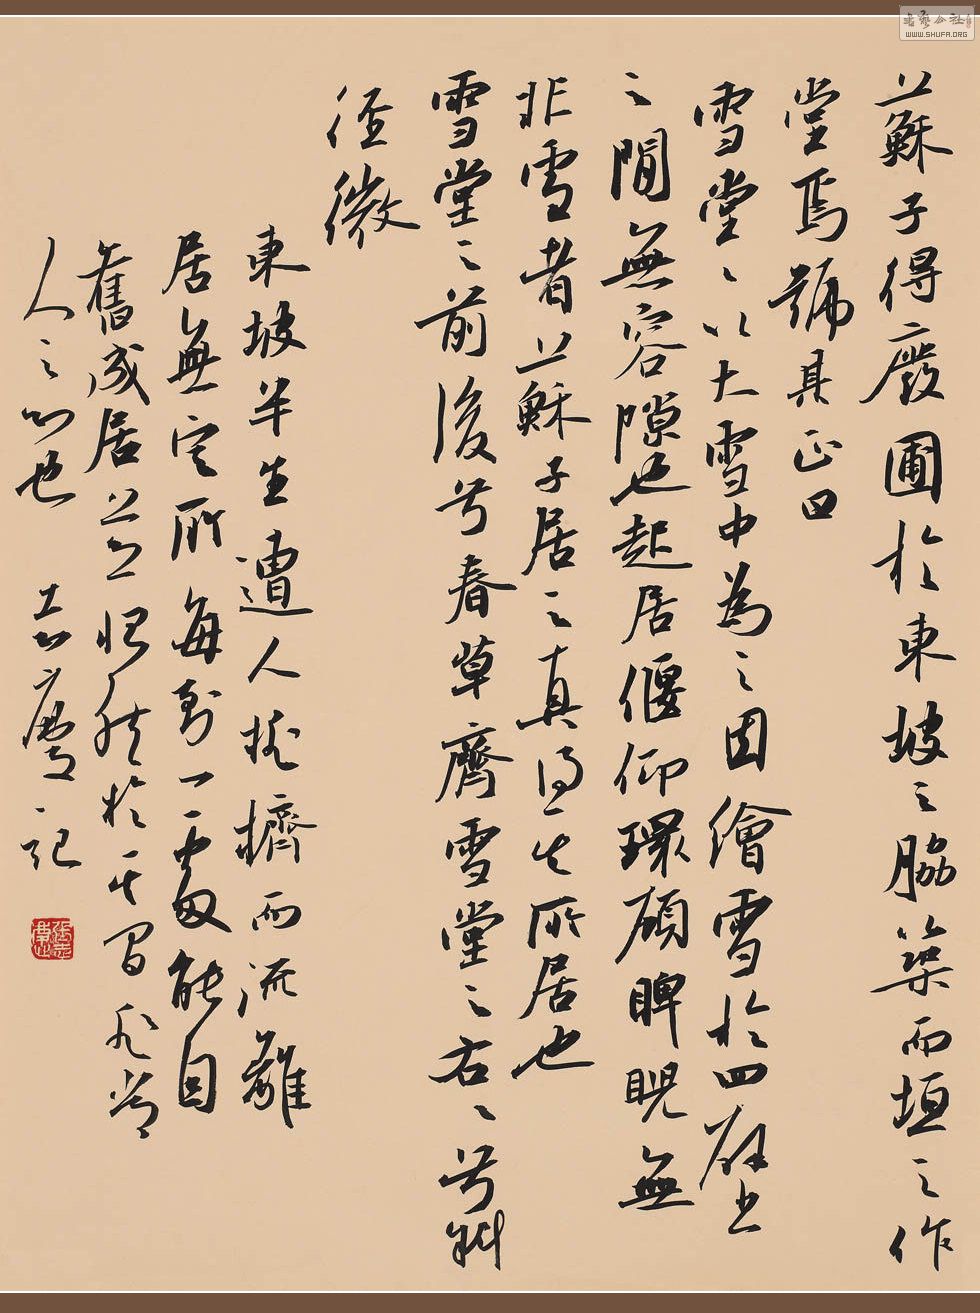 蘇子得廢圃於東坡之脇築而垣之作
堂焉號其正曰
雪堂〻以大雪中為之因繪雪於四壁
之間無容隙也起居偃仰環顧睥睨無
非雪者蘇子居之真得其所居也
雪堂之前後兮春草齊雪堂之右〻兮斜
徑微
東坡半生遭人排擠而流離
居無定所每到一處能自
舊成居並怡然於其間非常
人之心也 志慶記
WWW.SHUFA.ORG